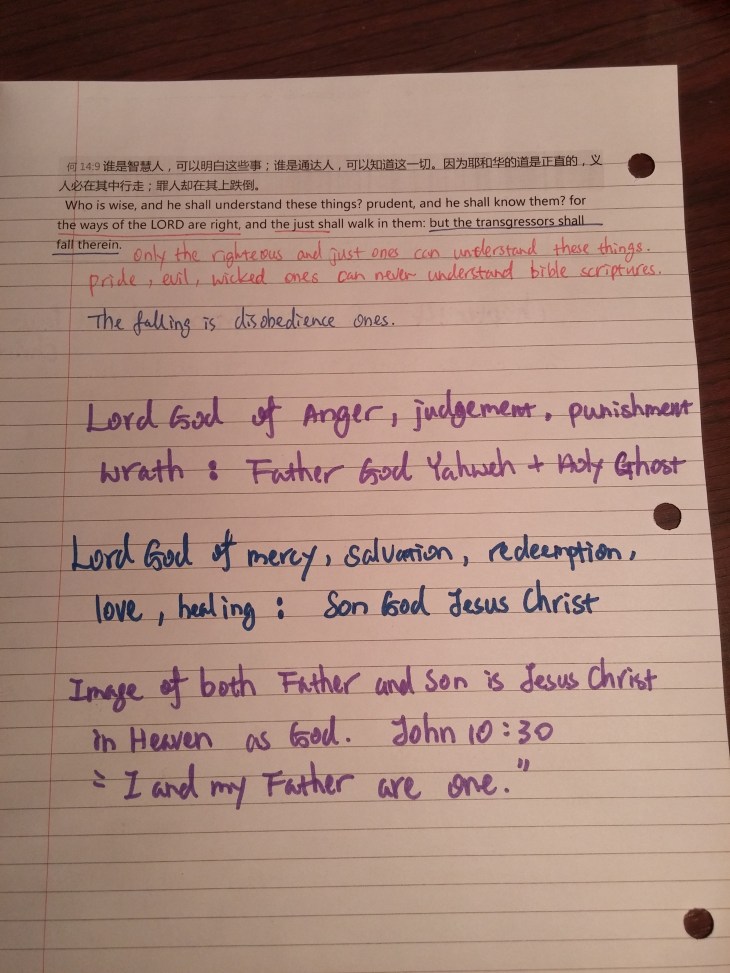 何 14:9 谁是智慧人，可以明白这些事；谁是通达人，可以知道这一切。因为耶和华的道是正直的，义
人必在其中行走；罪人却在其上跌倒。
Who is wise, and he shall understand these things? prudent, and he shall know them? for
the ways of the LORD are right, and the just shall walk in them: but the transgressors shall
fall therein. only the righteous and just ones can understand these things.
pride, evil, wicked ones can never understand bible scriptures.
The falling is disobedience ones.
Lord God of Anger, judgement, punishment
wrath : Father God Yahweh + Holy Ghost
Lord God of mercy, salvation, redeemption,
love, healing : Son God Jesus Christ
Image of both Father and Son is Jesus Christ
in Heaven as God. John 10:30
= I and my Father are one."